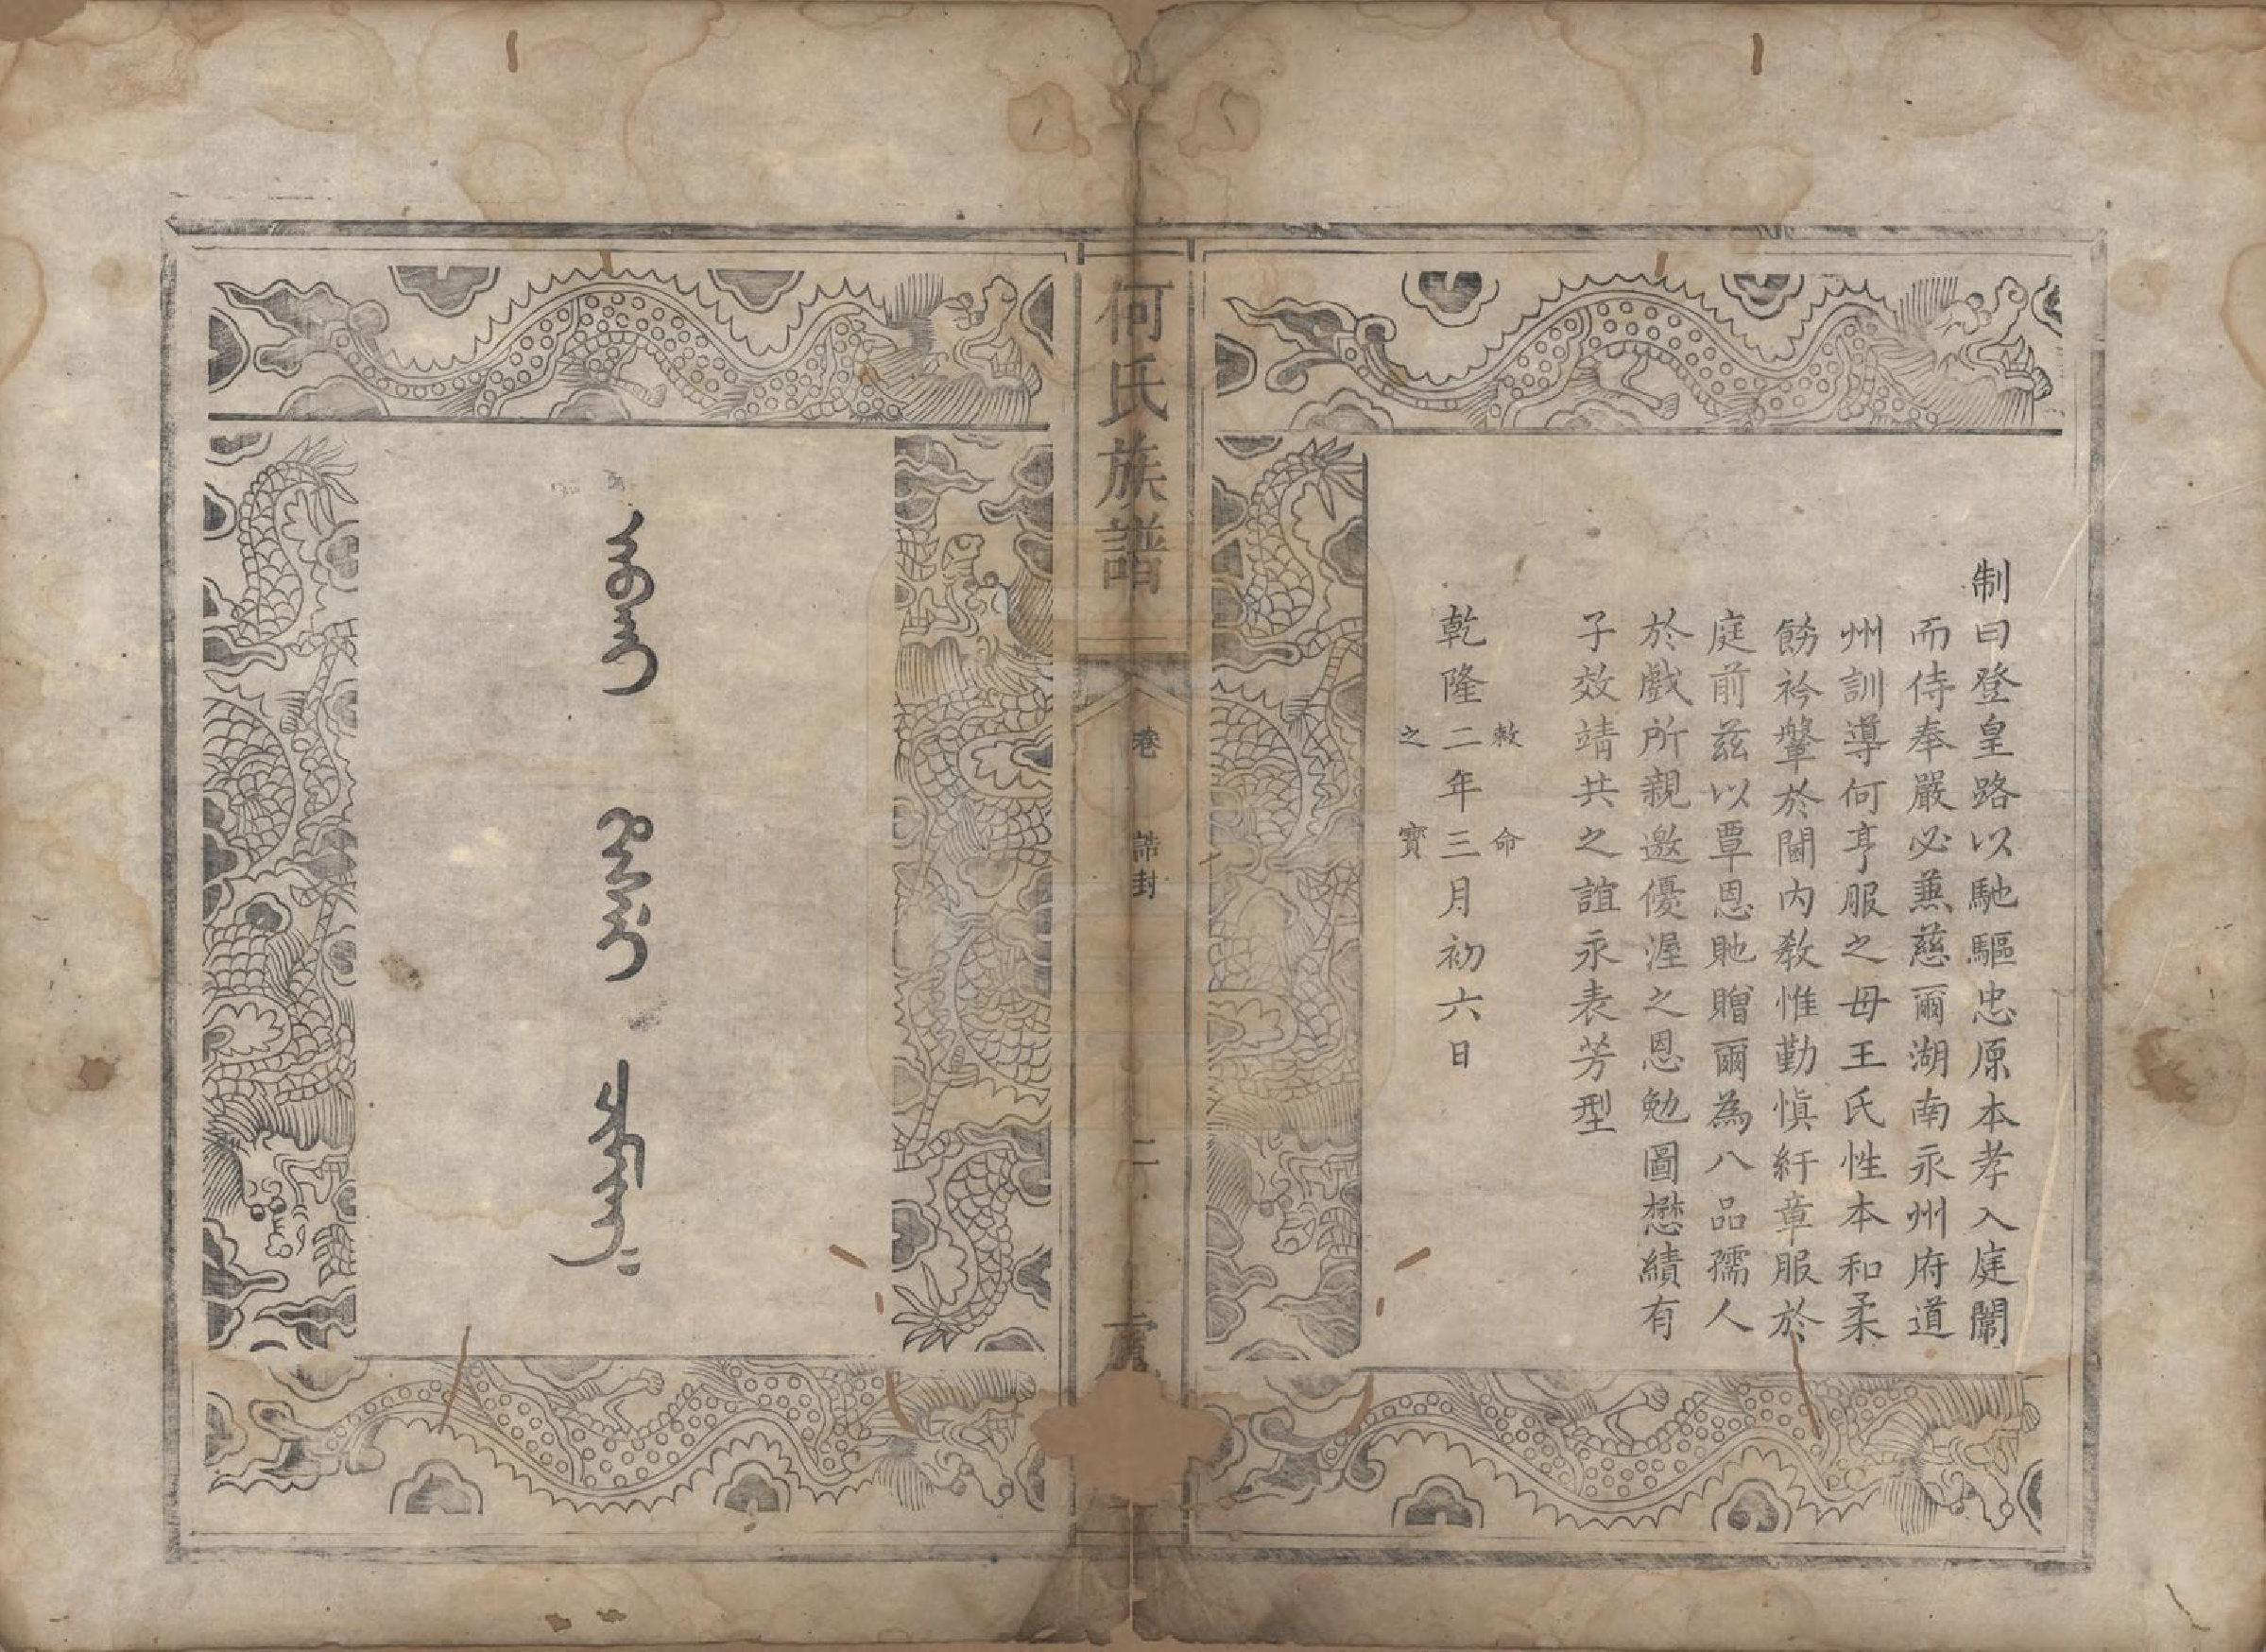 制曰登皇路以馳驅忠原本孝入庭闈
而侍奉嚴必兼慈爾湖南永州府道
州訓導何亨服之母王氏性本和柔
飭衿鞶於閫内教惟勤慎紆章服於
庭前茲以覃恩貤贈爾為八品孺人
於戲所親邀優渥之恩勉圖懋績有
子效靖共之誼永表芳型
敕命
乾隆二年三月初六日
之寶
何氏族譜
卷
誥封
二